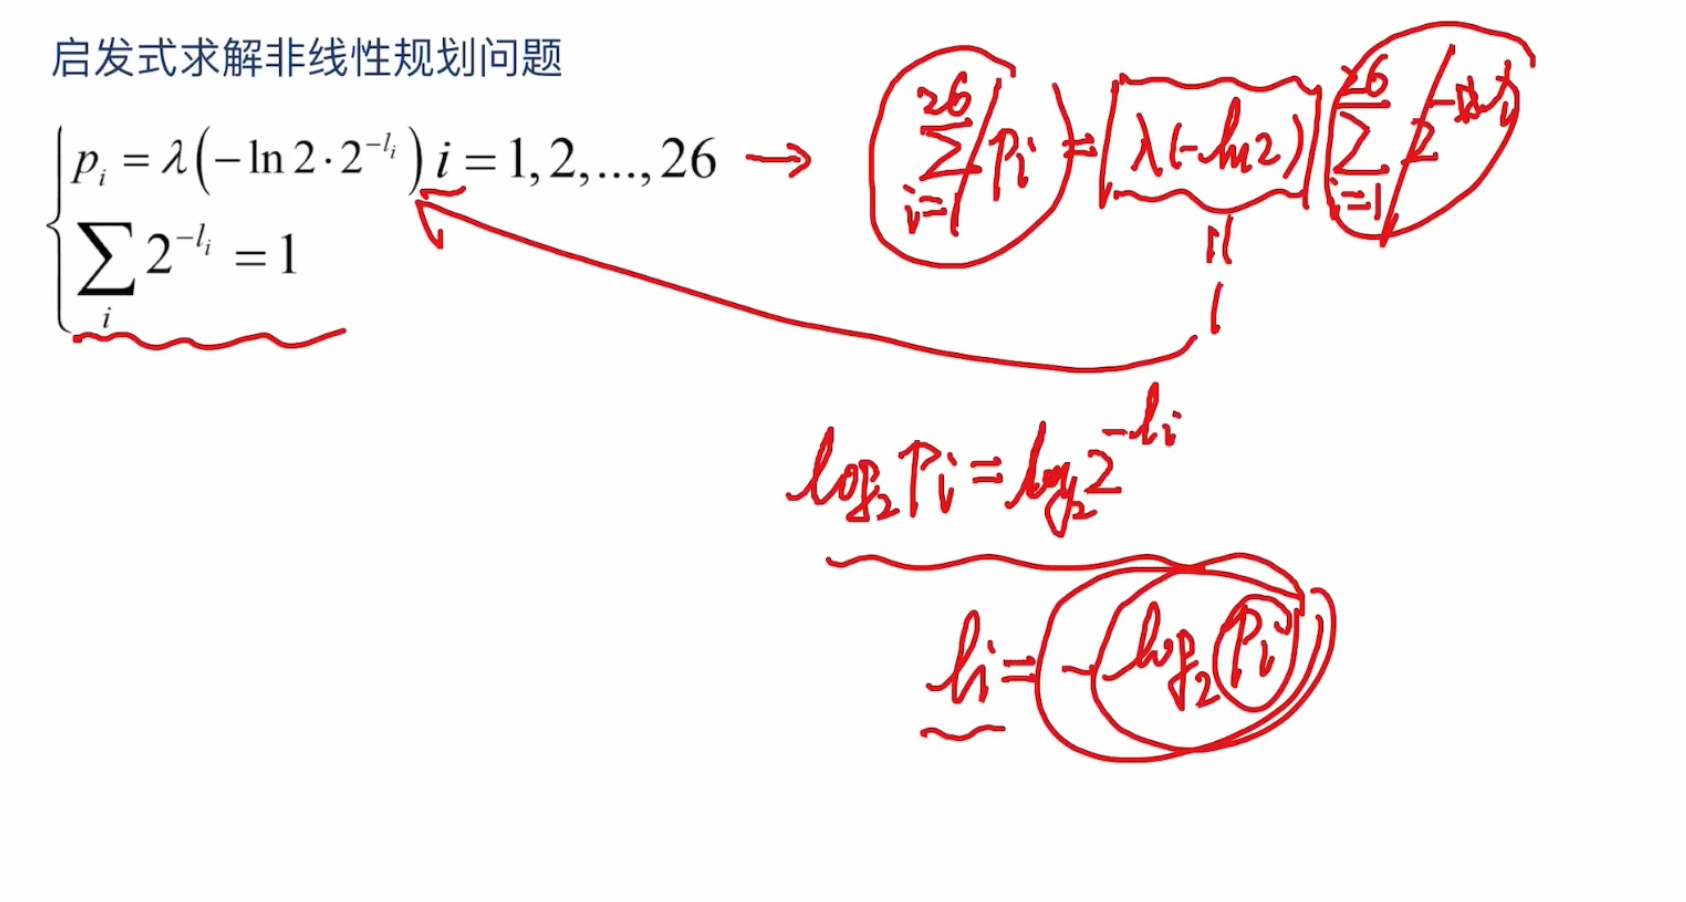 启发式求解非线性规划问题
p_i = λ(−ln 2 · 2^{−l_i}) i = 1, 2, ..., 26 → \sum_{i=1}^{26} p_i = λ(−ln2) \sum_{i=1}^{26} 2^{−l_i}
\sum_i 2^{−l_i} = 1
||
1
log_2 p_i = log_2 2^{−l_i}
l_i = −log_2 p_i